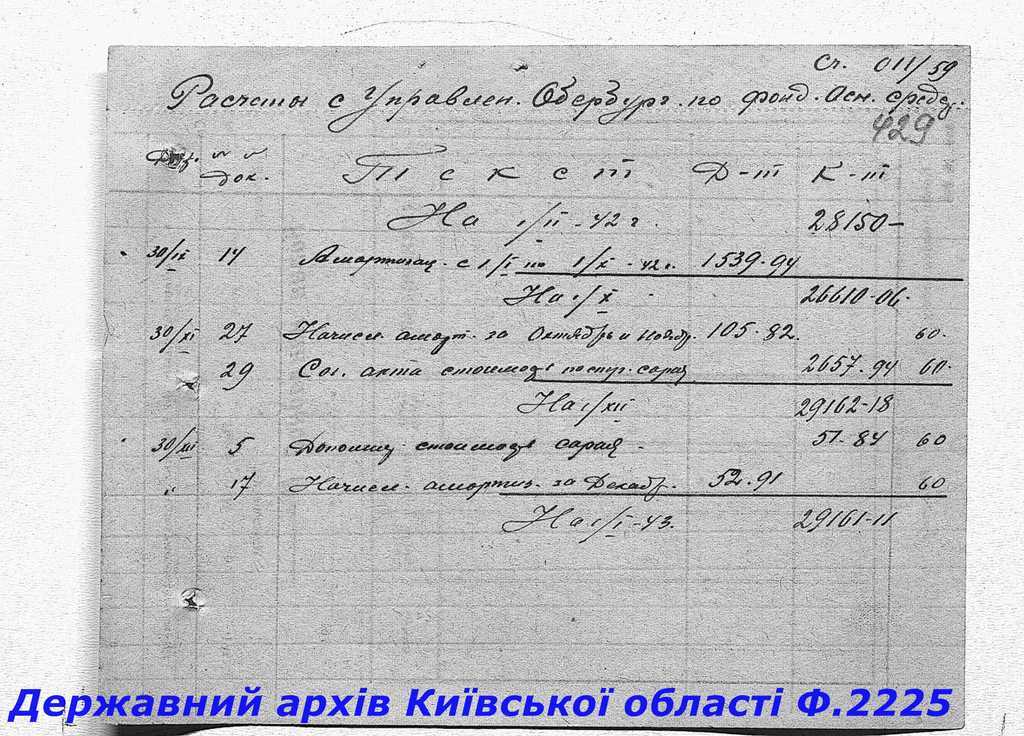 Сч. 011/59
Расчеты с Управлен. Обербург. по фонд. Осн. средс.
429
№№ док. Текст Д-т К-т
На 1/II-42 г. 28150-
30/IX 14 Амортизац. с 1/I по 1/X-42г. 1539-94
На 1/X 26610-06-
30/XI 27 Начисл. аморт. за Октябрь и Ноябр. 105-82. 60-
29 Сог. акта стоимость поступ. сарая 2657-94 60-
На 1/XII 29162-18
30/XII 5 стоимость сарая - 51-84 60
" 17 Начисл. амортиз. за Декабр. 52-91 60
На 1/I-43. 29161-11
Державний архів Київської області Ф.2225